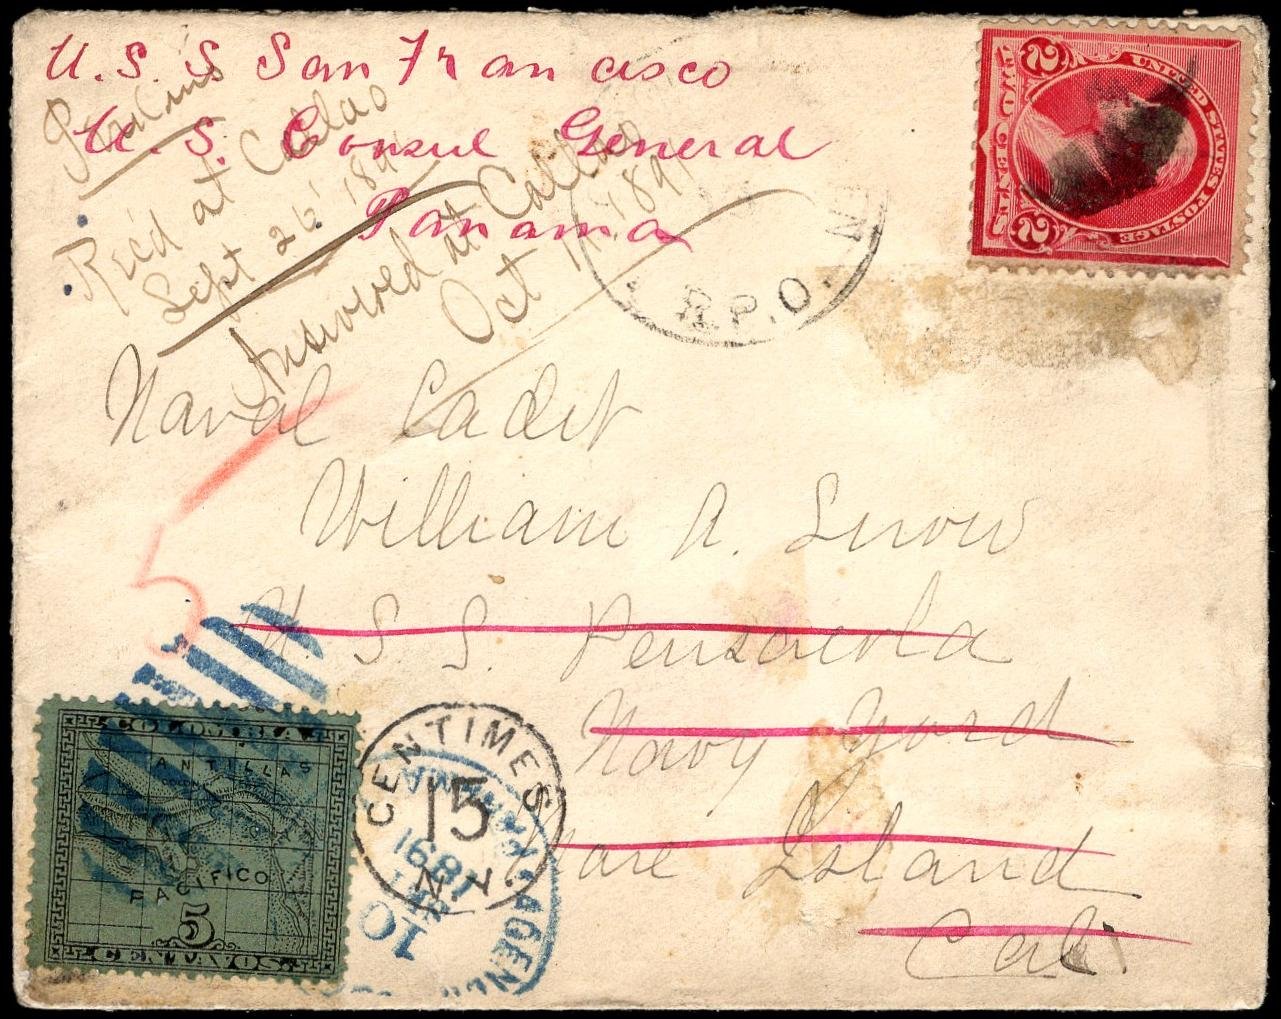 U. S. S San Francisco
U. S. Consul General
Panama
Rec'd at Callao
Sept 26' 189
Answered at Callao
Oct 189
R.P.O.
N
UNITED STATES POSTAGE
2 TWO CENTS 2
Naval Cadet
William A. Snow
U S S. Pensacola
Navy Yard
Mare Island
Cal.
5
COLOMBIA
ANTILLAS
PACIFICO
5
CENTAVOS
CENTIMES
15
N.Y.
AGEN
PANAMA
1891
10